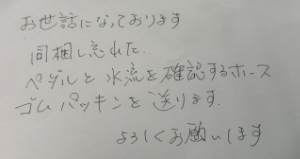 お世話になっております
同梱し忘れた
ペダルと水流を確認するホース
ゴムパッキンを送ります.
よろしくお願いします